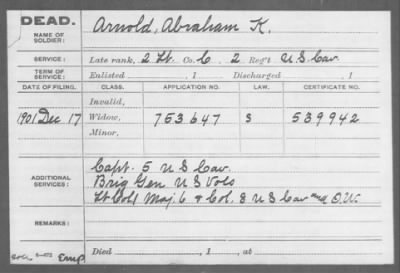 DEAD.
NAME OF SOLDIER:
Arnold, Abraham K.
SERVICE:
Late rank, 2 Lt. Co. C, 2 Reg't U.S. Cav.
TERM OF SERVICE:
Enlisted , 1 Discharged , 1
DATE OF FILING. CLASS. APPLICATION NO. LAW. CERTIFICATE NO.
Invalid,
1901 Dec 17 Widow, 753647 S 539942
Minor,
ADDITIONAL SERVICES:
Capt. 5 U S Cav.
Brig Gen U S Vols
Lt Col & Maj. 6 & Col. 8 U S Cav and
REMARKS:
Died , 1 , at